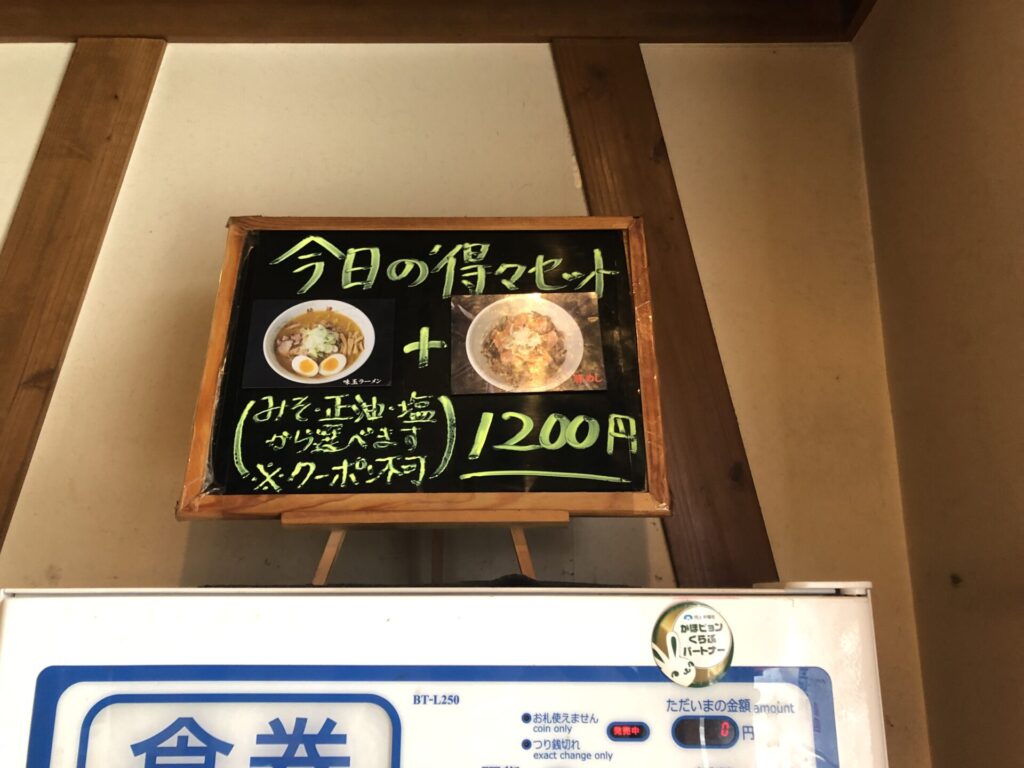 今日の得々セット
味玉ラーメン
+
(みそ・正油・塩
から選べます
※クーポン不可)
1200円
がほピョン
くらぶ
パートナー
BT-L250
お札使えません
coin only
つり銭切れ
exact change only
発売中
ただいまの金額 amount
0円
食券